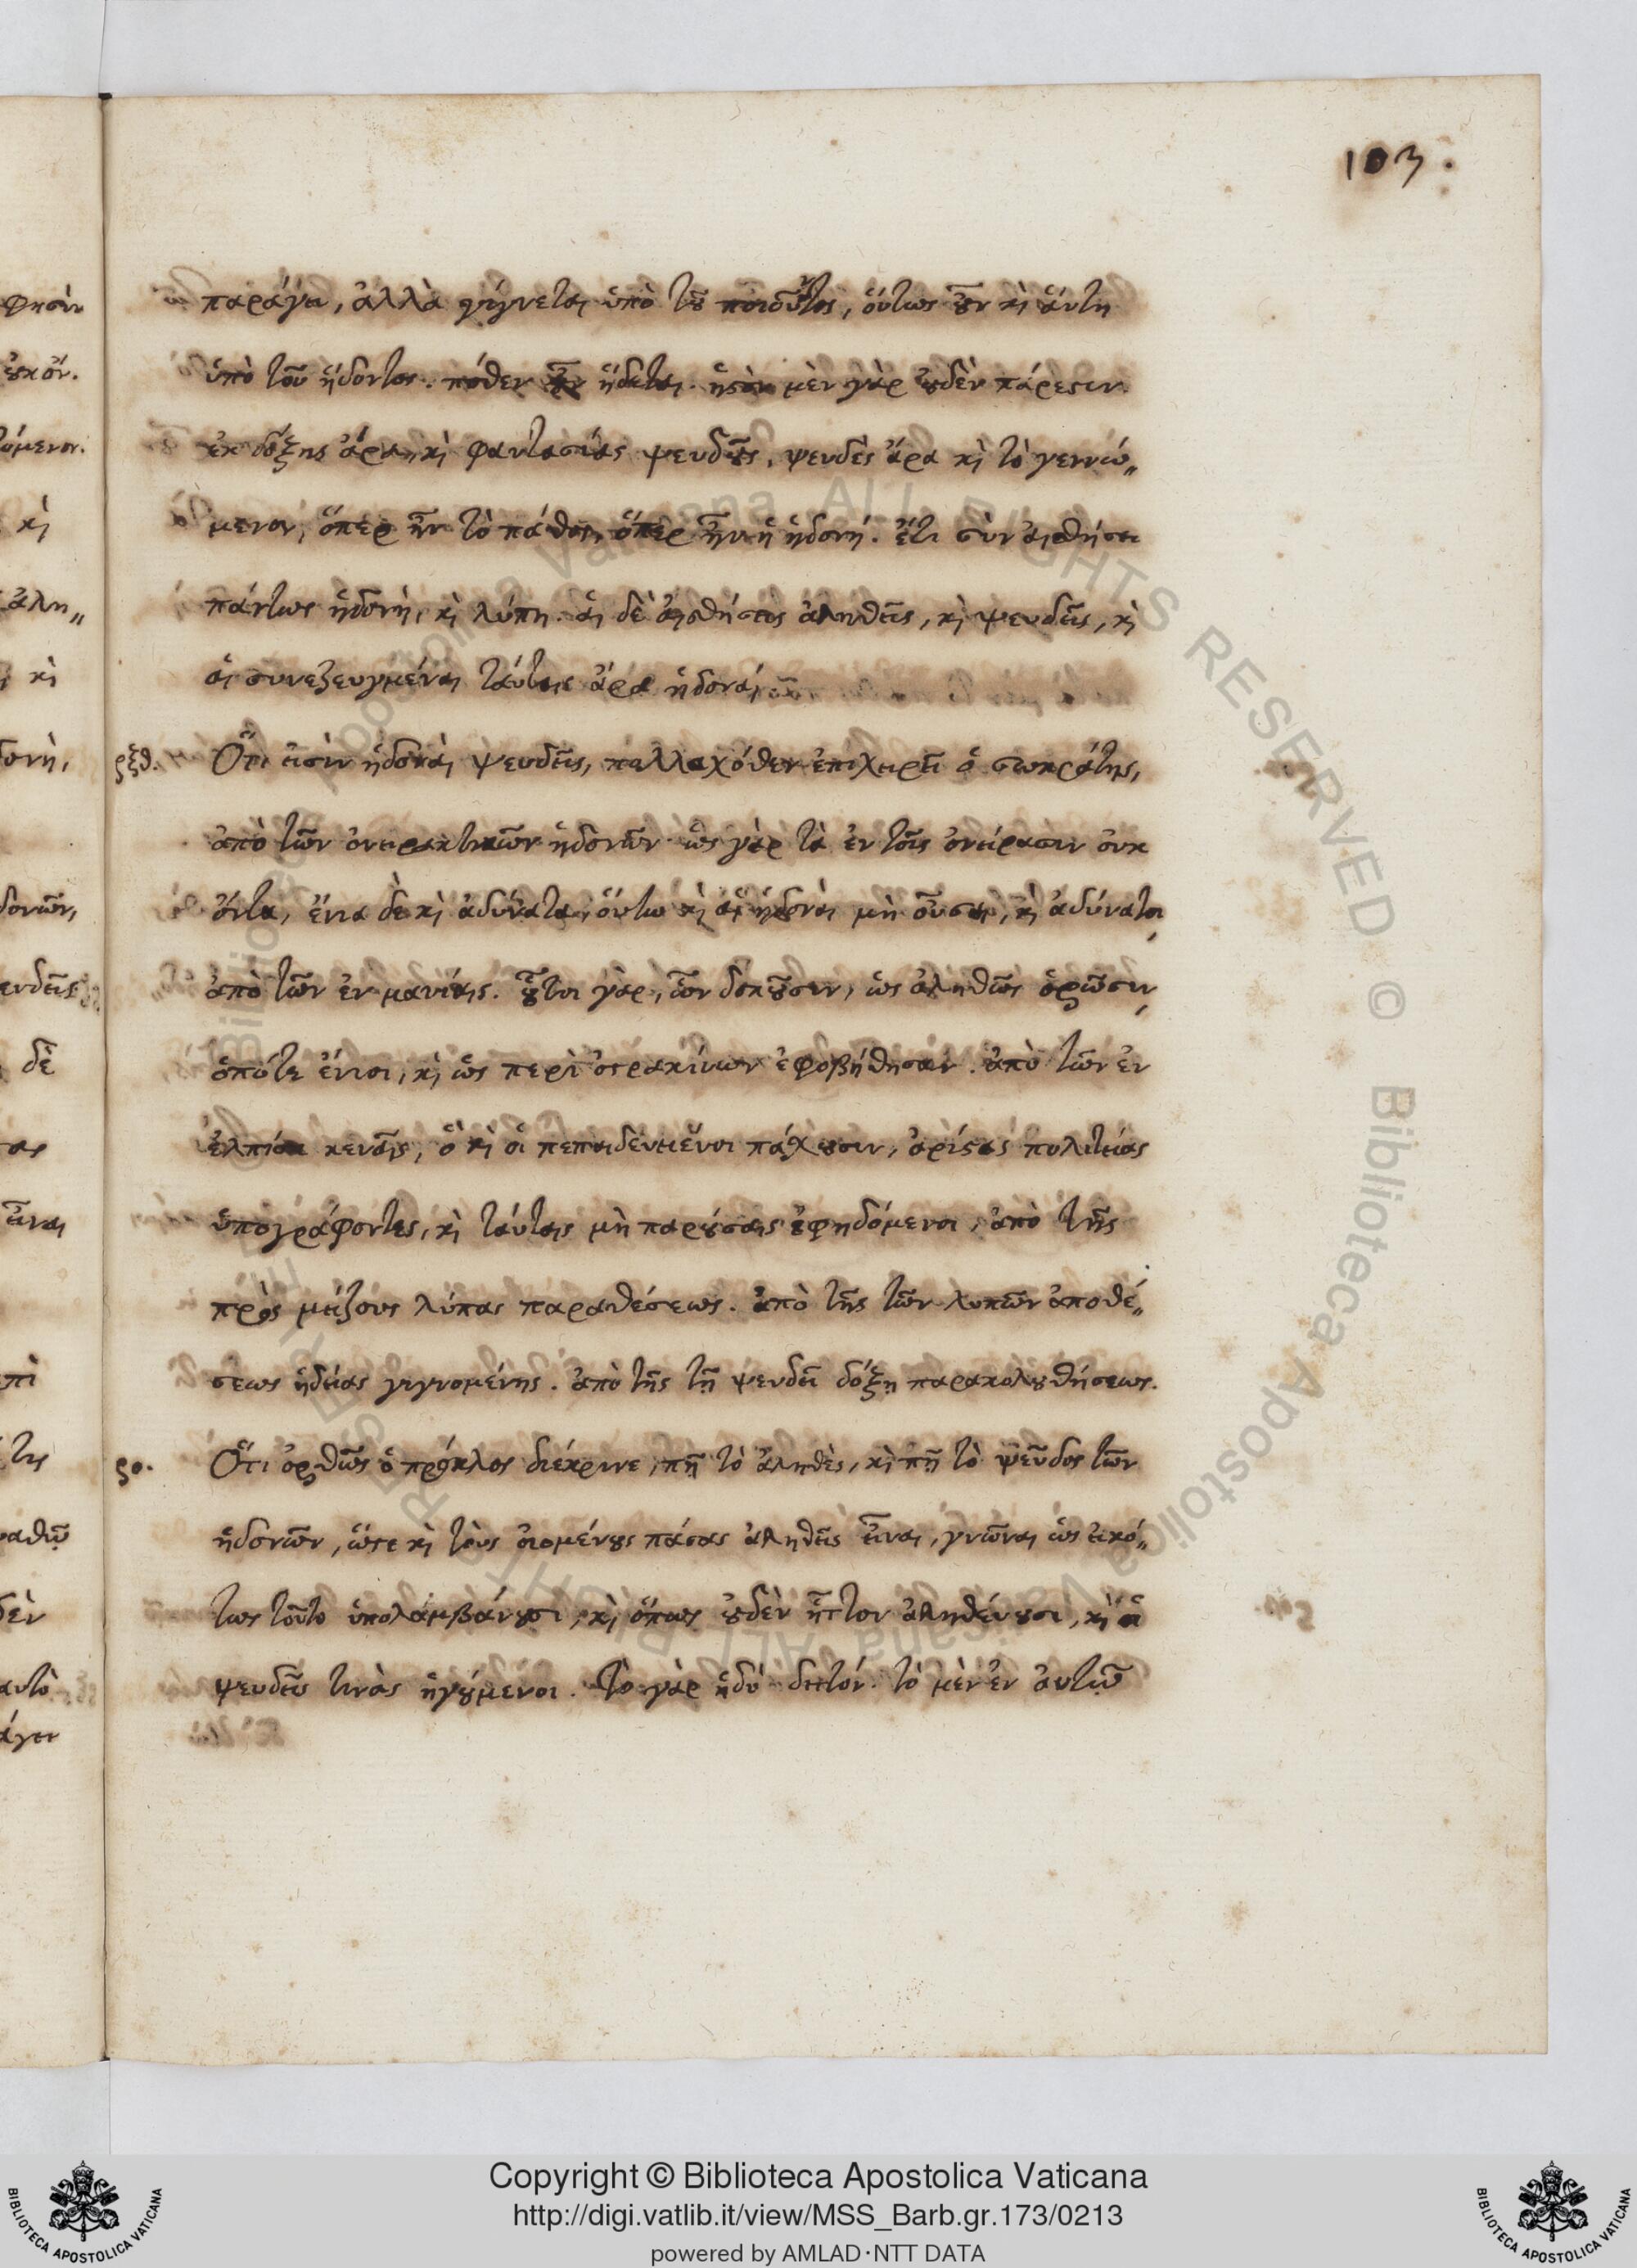 103.
παράγει, ἀλλὰ γίγνεται ὑπὸ τοῦ ποιοῦντος, οὕτως οὖν καὶ αὕτη
ὑπὸ τοῦ ἥδοντος. πόθεν οὖν ἥδεται. μὲν γὰρ οὐδὲν πάρεστιν.
ἐκ δόξης ἄρα, καὶ φαντασίας ψευδοῦς, ψευδὲς ἄρα καὶ τὸ γεννώ„
μενον, ὅπερ ἦν τὸ πάθος, ὅπερ ἦν ἡ ἡδονή. ἔτι σὺν αἰσθήσει
πάντως ἡδονὴ, καὶ λύπη. αἱ δὲ αἰσθήσεις ἀληθεῖς, καὶ ψευδεῖς, καὶ
αἱ συνεζευγμέναι ταύταις ἄρα ἡδοναί
ρξθ. Ὅτι εἰσὶν ἡδοναὶ ψευδεῖς, πολλαχόθεν ἐπιχειρεῖ ὁ σωκράτης,
ἀπὸ τῶν ὀνειρακτικῶν ἡδονῶν ὡς γὰρ τὰ ἐν τοῖς ὀνείρασιν οὐκ
ὄντα, ἔνια δὲ καὶ ἀδύνατα, οὕτω καὶ αἱ ἡδοναὶ μὴ οὖσαι, καὶ ἀδύνατοι,
ἀπὸ τῶν ἐν μανίαις. οὗτοι γὰρ, ὧν δοκοῦσιν, ὡς ἀληθῶς ὁρῶσιν,
ὁπότε ἔνιοι, καὶ ὡς περὶ ὀστρακίνων ἐφοβήθησαν. ἀπὸ τῶν ἐν
ἐλπίσι κεναῖς, ὃ καὶ οἱ πεπαιδευμένοι πάχουσιν, ἀρίστας πολιτείας
ὑπογράφοντες, καὶ ταύταις μὴ παρούσαις ἐφηδόμενοι, ἀπὸ τῆς
πρὸς μείζους λύπας παραθέσεως. ἀπὸ τῆς τῶν λυπῶν ἀποθέ„
σεως ἡδείας γιγνομένης. ἀπὸ τῆς τῇ ψευδεῖ δόξῃ παρακολουθήσεως.
ρο. Ὅτι ὀρθῶς ὁ πρόκλος διέκρινε, πῇ τὸ ἀληθὲς, καὶ πῇ τὸ ψεῦδος τῶν
ἡδονῶν, ὥστε καὶ τοὺς οἰομένους πάσας ἀληθεῖς εἶναι, γνῶναι ὡς εἰκό„
τως τοῦτο ὑπολαμβάνουσι, καὶ ὅπως οὐδὲν ἧττον ἀληθεύουσι, καὶ οἱ
ψευδεῖς τινὰς ἡγούμενοι. τὸ γὰρ ἡδὺ διττόν. τὸ μὲν ἐν αὐτῷ
Copyright © Biblioteca Apostolica Vaticana
http://digi.vatlib.it/view/MSS_Barb.gr.173/0213
powered by AMLAD·NTT DATA